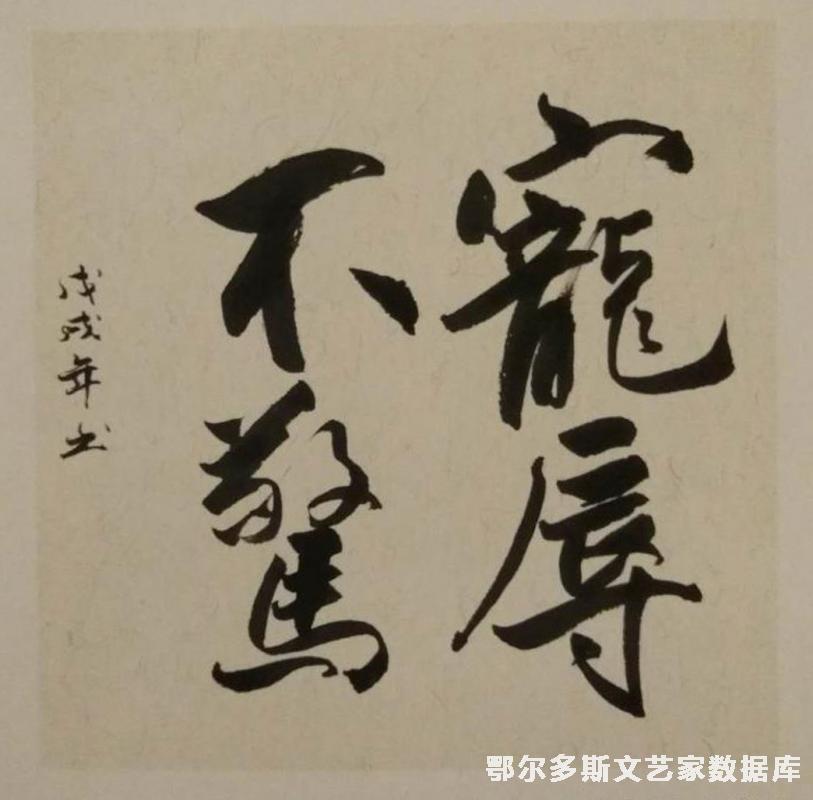 寵辱
不驚
戊戌年书
鄂尔多斯文艺家数据库